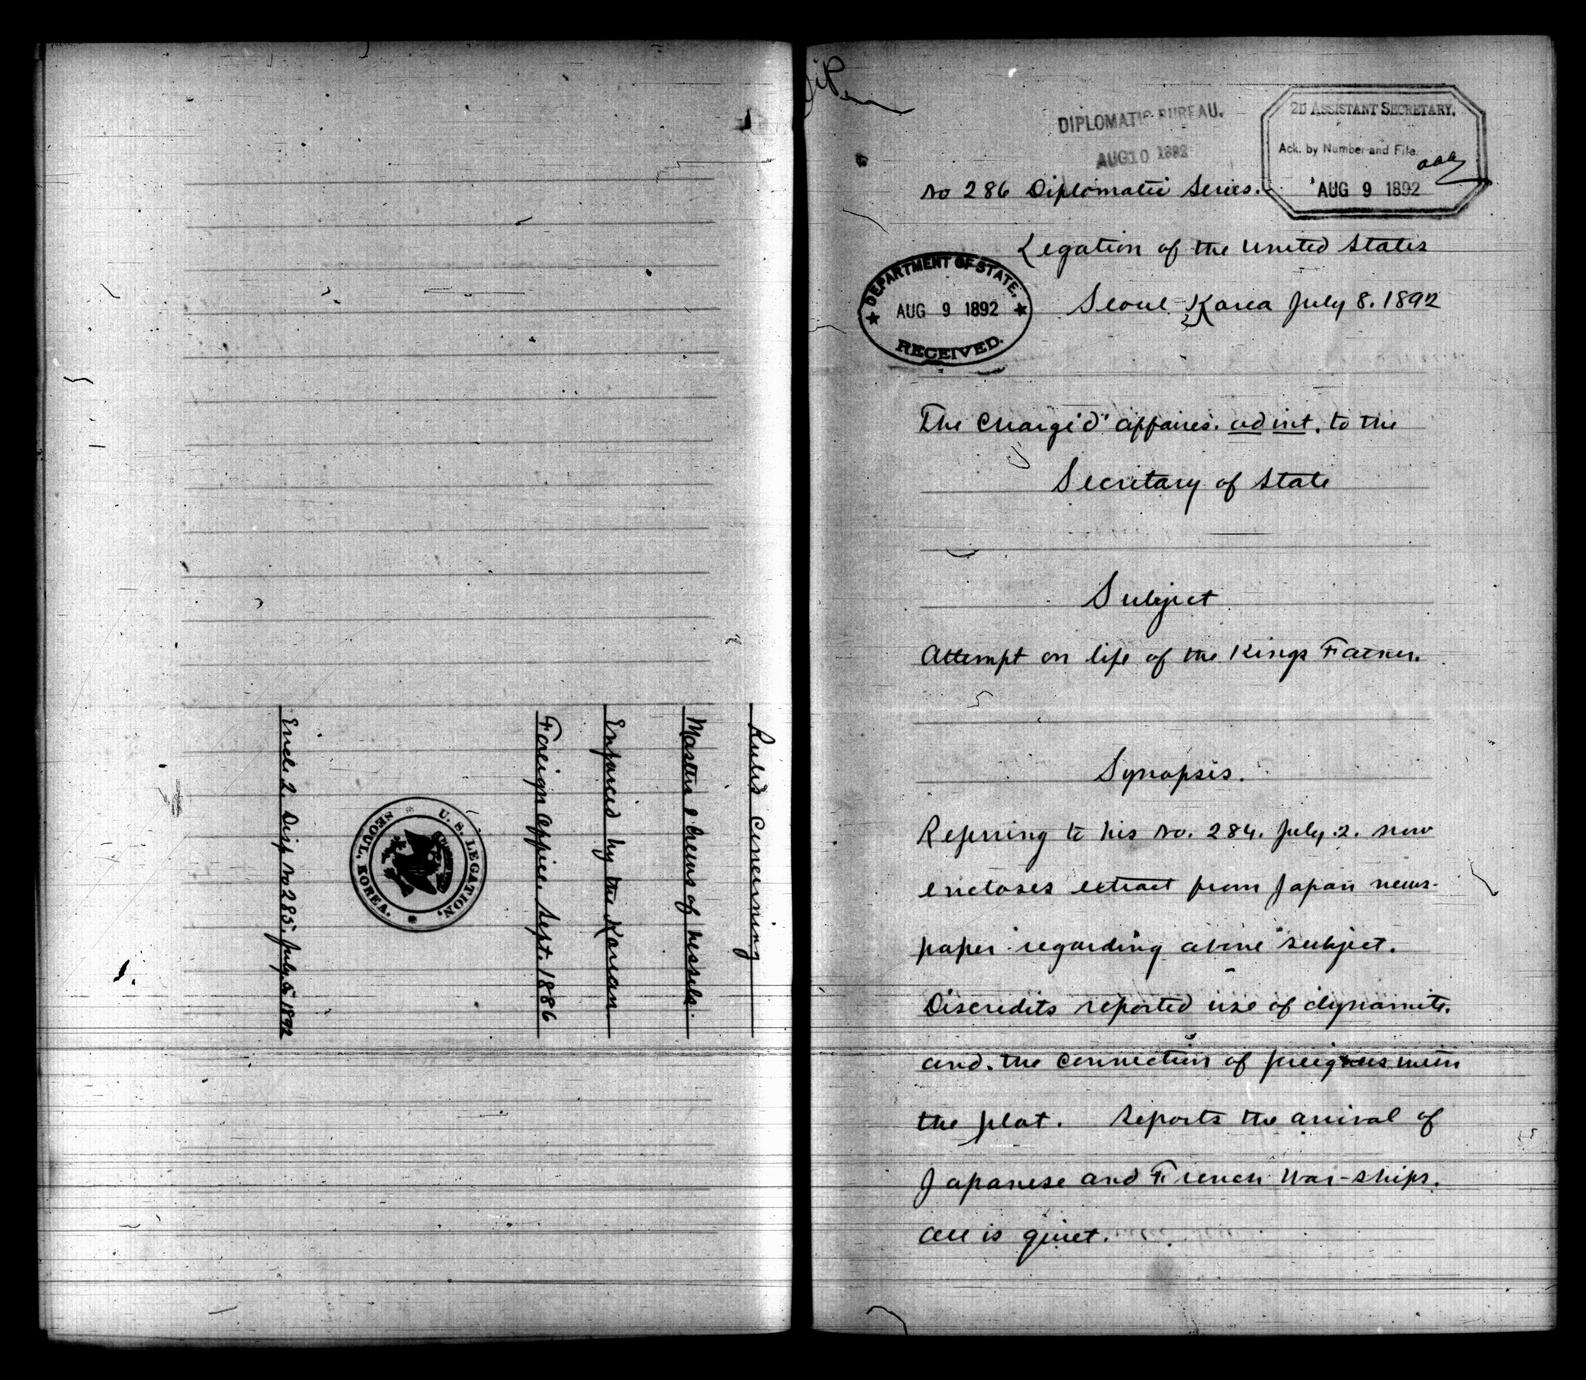 Rules Concerning
Masters & Crews of Vessels.
Enforced by the Korean
Foreign Office. Sept. 1886
U. S. LEGATION,
SEOUL, KOREA.
Encl. 2. Disp No 285. July 5. 1892
DIPLOMATIC BUREAU.
AUG 10 1892
2D ASSISTANT SECRETARY.
Ack. by Number and File.
AUG 9 1892
No 286 Diplomatic Series.
Legation of the United States
DEPARTMENT OF STATE.
AUG 9 1892
RECEIVED.
Seoul Korea July 8. 1892
The Chargé d'affaires. ad int. to the
Secretary of State
Subject
Attempt on life of the Kings Father.
Synopsis.
Referring to his No. 284. July. 2. now
encloses extract from Japan news-
paper regarding above subject.
Discredits reported use of dynamite.
and. the connection of foreigners with
the plot. Reports the arrival of
Japanese and French War-ships.
All is quiet.